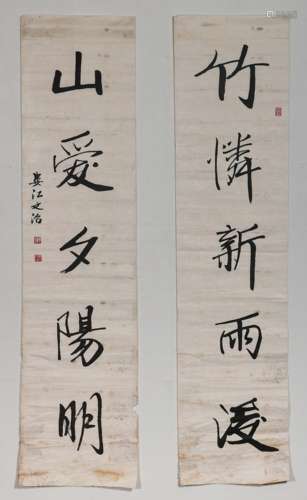 竹憐新雨後
山愛夕陽明
婁江文治